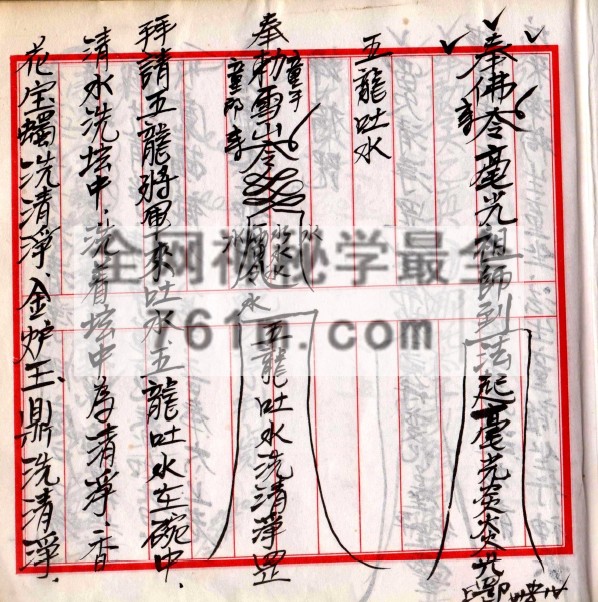 奉佛令毫光祖師到法起毫光炎炎光罡
五龍吐水
奉勅雪山令
童子
童郎
水
水
水
水
五龍吐水洗清淨罡
拜請五龍將軍來吐水、五龍吐水在碗中、
清水洗坛中、洗着坛中為清淨、香
花宝燭洗清淨、金炉玉鼎洗清淨、
全网神秘学最全
761n.com